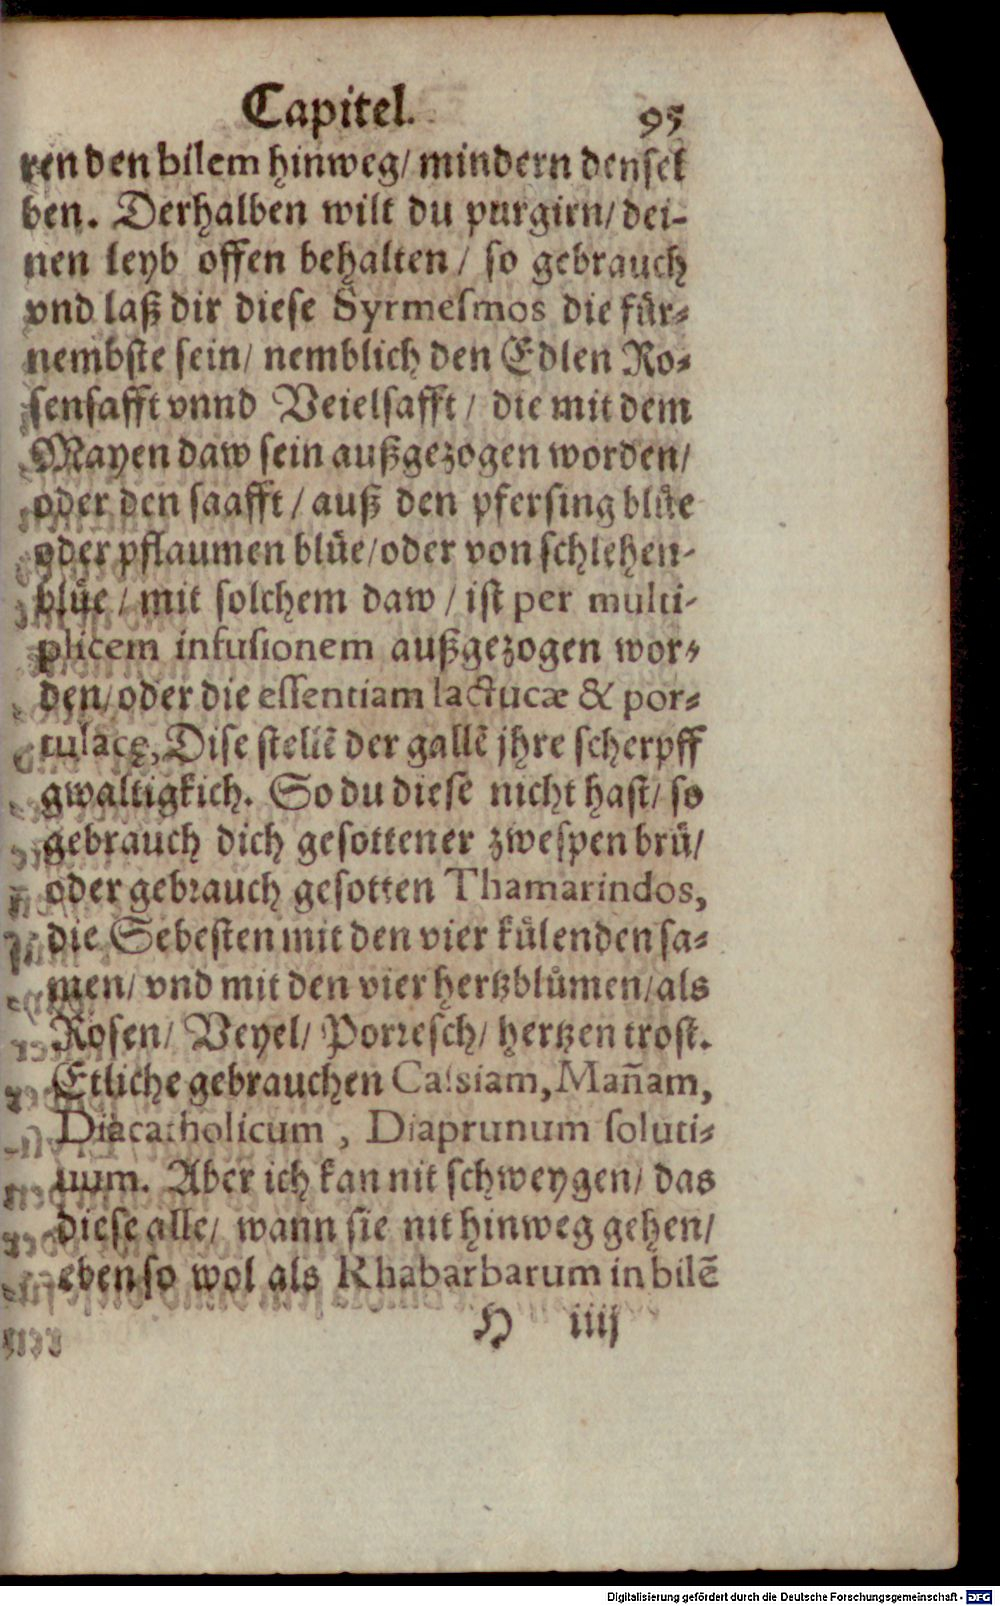 Capitel. 95
ren den bilem hinweg/ mindern densel
ben. Derhalben wilt du purgirn/ dei-
nen leyb offen behalten / so gebrauch
vnd laß dir diese Syrmesmos die fuͤr-
nembste sein/ nemblich den Edlen Ro-
sensafft vnnd Veielsafft / die mit dem
Mayen daw sein außgezogen worden/
oder den saafft / auß den pfersing bluͤe
oder pflaumen bluͤe/oder von schlehen-
bluͤe / mit solchem daw / ist per multi-
plicem infusionem außgezogen wor-
den/ oder die essentiam lactucæ & por-
tulacę, Dise stellẽ der gallẽ jhre scherpff
gwaltigkich. So du diese nicht hast/ so
gebrauch dich gesottener zwespen bruͤ/
oder gebrauch gesotten Thamarindos,
die Sebesten mit den vier kuͤlenden sa-
men/ vnd mit den vier hertzbluͦmen/ als
Rosen/ Veyel/ Porresch/ hertzen trost.
Etliche gebrauchen Cassiam, Mañam,
Diacatholicum , Diaprunum soluti-
uum. Aber ich kan nit schweygen/ das
diese alle/ wann sie nit hinweg gehen/
eben so wol als Rhabarbarum in bilẽ
H iiij
Digitalisierung gefördert durch die Deutsche Forschungsgemeinschaft - DFG